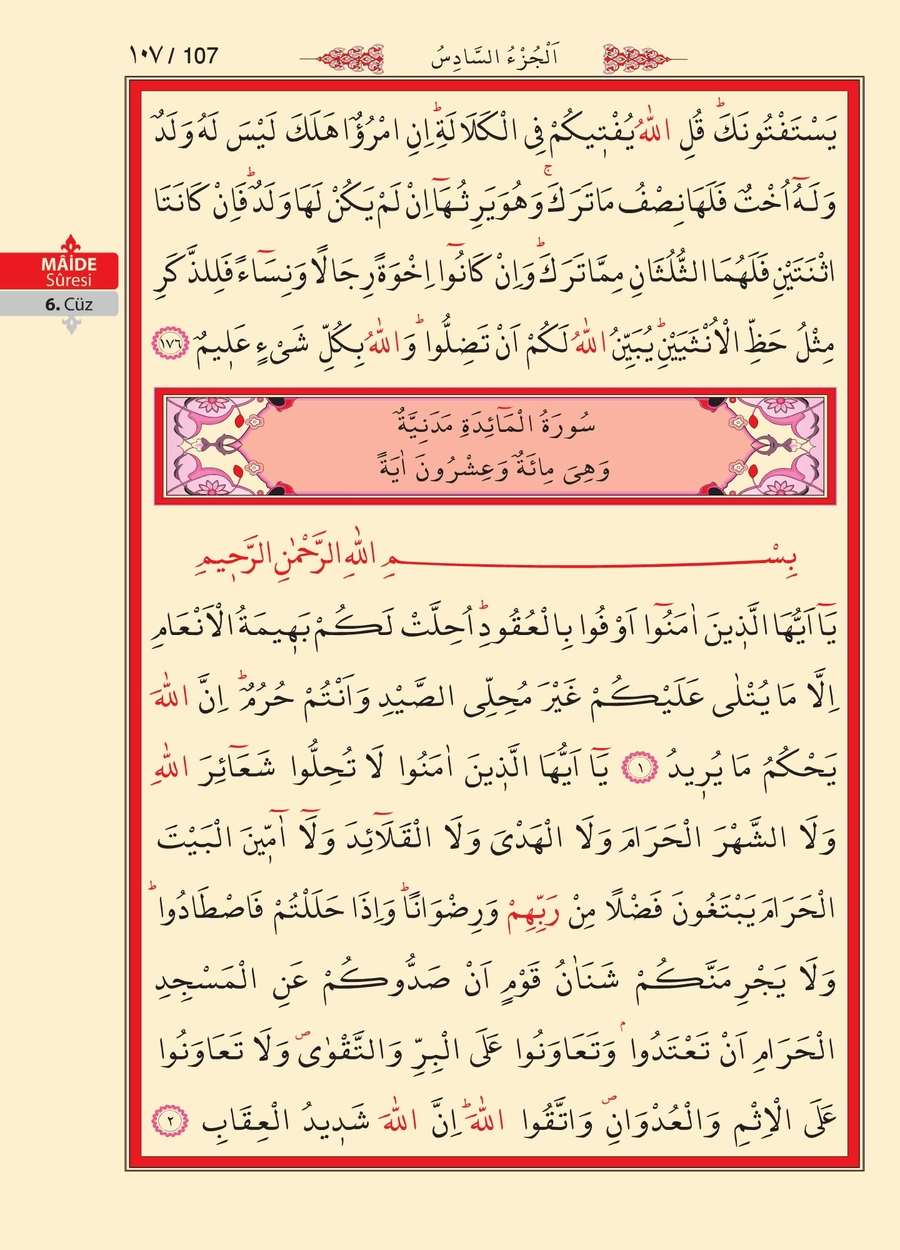 ١٠٧ / 107
اَلْجُزْءُ السَّادِسُ
MÂİDE
Sûresi
6. Cüz
يَسْتَفْتُونَكَۜ قُلِ اللّٰهُ يُفْت۪يكُمْ فِى الْكَلَالَةِۜ اِنِ امْرُؤٌا هَلَكَ لَيْسَ لَهُ وَلَدٌ
وَلَهُٓ اُخْتٌ فَلَهَا نِصْفُ مَا تَرَكَۚ وَهُوَ يَرِثُهَٓا اِنْ لَمْ يَكُنْ لَهَا وَلَدٌۜ فَاِنْ كَانَتَا
اثْنَتَيْنِ فَلَهُمَا الثُّلُثَانِ مِمَّا تَرَكَۜ وَاِنْ كَانُٓوا اِخْوَةً رِجَالًا وَنِسَٓاءً فَلِلذَّكَرِ
مِثْلُ حَظِّ الْاُنْثَيَيْنِۜ يُبَيِّنُ اللّٰهُ لَكُمْ اَنْ تَضِلُّواۜ وَاللّٰهُ بِكُلِّ شَىْءٍ عَل۪يمٌ ﴿١٧٦﴾
سُورَةُ الْمَٓائِدَةِ مَدَنِيَّةٌ
وَهِىَ مِائَةٌ وَعِشْرُونَ اٰيَةً
بِسْمِ اللّٰهِ الرَّحْمٰنِ الرَّح۪يمِ
يَٓا اَيُّهَا الَّذ۪ينَ اٰمَنُٓوا اَوْفُوا بِالْعُقُودِۜ اُحِلَّتْ لَكُمْ بَه۪يمَةُ الْاَنْعَامِ
اِلَّا مَا يُتْلٰى عَلَيْكُمْ غَيْرَ مُحِلِّى الصَّيْدِ وَاَنْتُمْ حُرُمٌۜ اِنَّ اللّٰهَ
يَحْكُمُ مَا يُر۪يدُ ﴿١﴾ يَٓا اَيُّهَا الَّذ۪ينَ اٰمَنُوا لَا تُحِلُّوا شَعَٓائِرَ اللّٰهِ
وَلَا الشَّهْرَ الْحَرَامَ وَلَا الْهَدْىَ وَلَا الْقَلَٓائِدَ وَلَٓا اٰمّ۪ينَ الْبَيْتَ
الْحَرَامَ يَبْتَغُونَ فَضْلًا مِنْ رَبِّهِمْ وَرِضْوَانًاۜ وَاِذَا حَلَلْتُمْ فَاصْطَادُواۜ
وَلَا يَجْرِمَنَّكُمْ شَنَاٰنُ قَوْمٍ اَنْ صَدُّوكُمْ عَنِ الْمَسْجِدِ
الْحَرَامِ اَنْ تَعْتَدُواۢ وَتَعَاوَنُوا عَلَى الْبِرِّ وَالتَّقْوٰىۖ وَلَا تَعَاوَنُوا
عَلَى الْاِثْمِ وَالْعُدْوَانِۖ وَاتَّقُوا اللّٰهَۜ اِنَّ اللّٰهَ شَد۪يدُ الْعِقَابِ ﴿٢﴾